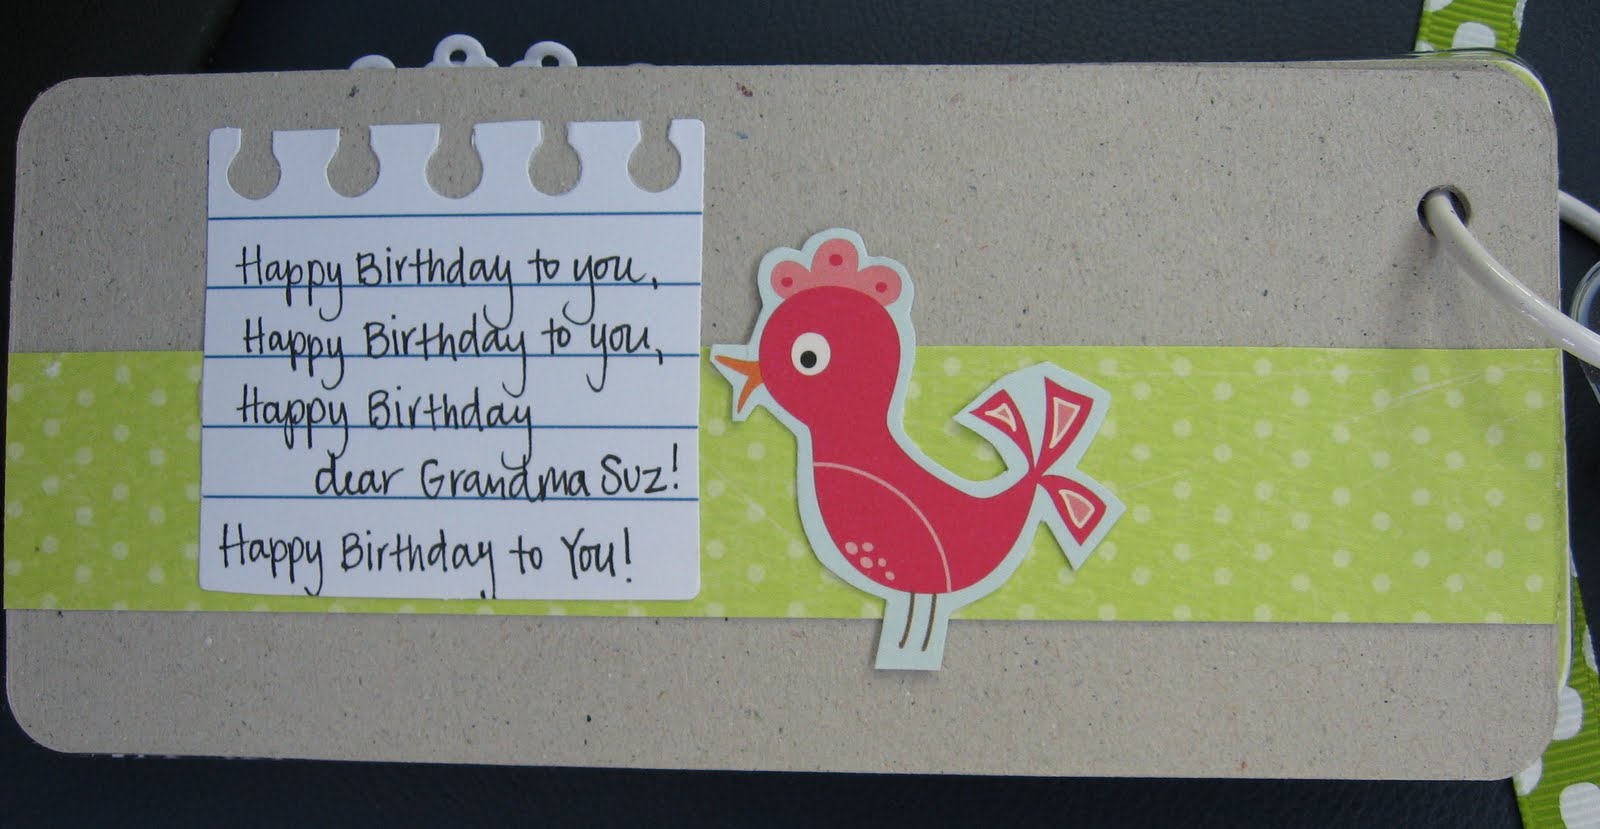 Happy Birthday to you,
Happy Birthday to you,
Happy Birthday
dear Grandma Suz!
Happy Birthday to You!